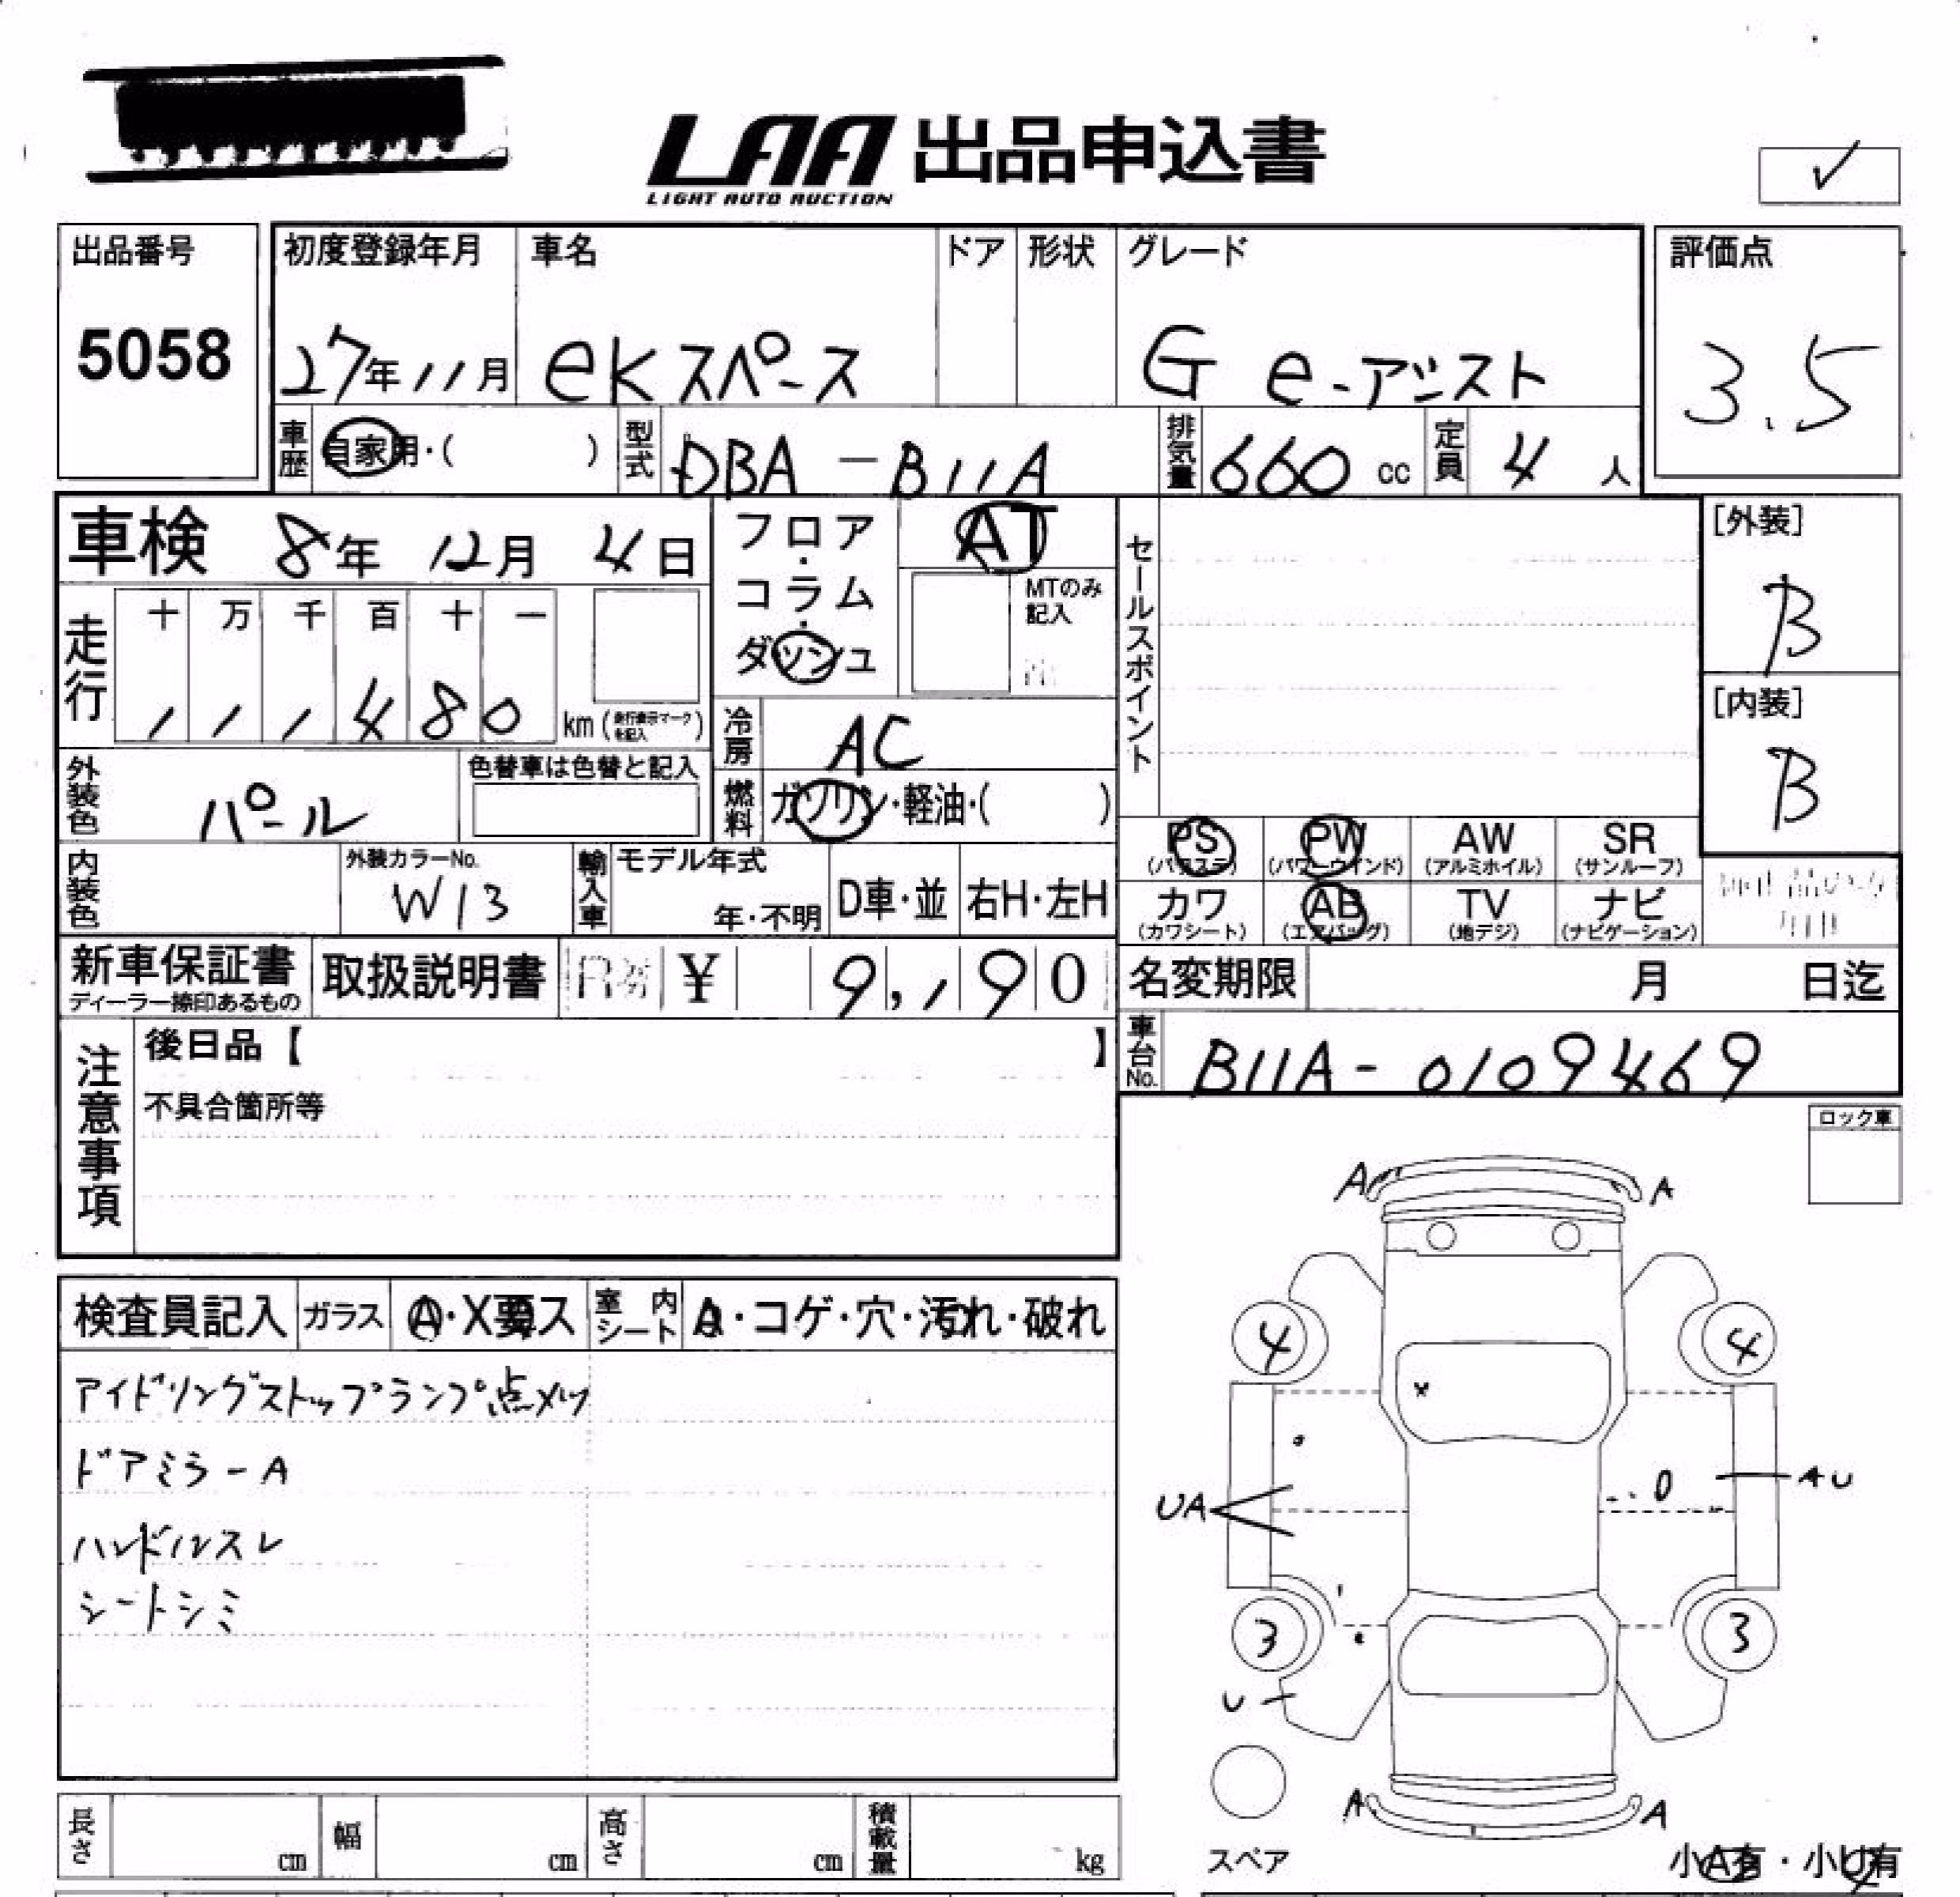 LAA 出品申込書
LIGHT AUTO AUCTION
✓
出品番号
5058
初度登録年月
27年11月
車名
eKスペース
ドア
形状
グレード
G e-アシスト
評価点
3.5
車歴
自家用・( )
型式
DBA-B11A
排気量
660 cc
定員
4 人
車検 8年 12月 4日
フロア・コラム・ダッシュ
AT
MTのみ記入
セールスポイント
[外装]
B
[内装]
B
走行
十 万 千 百 十 一
1 1 1 4 8 0 km (走行表示マークを記入)
冷房
AC
外装色
パール
色替車は色替と記入
燃料
ガソリン・軽油・( )
PS (パワステ)
PW (パワーウインド)
AW (アルミホイル)
SR (サンルーフ)
カワ (カワシート)
AB (エアバッグ)
TV (地デジ)
ナビ (ナビゲーション)
内装色
外装カラーNo.
W13
輸入車
モデル年式
年・不明
D車・並
右H・左H
新車保証書
ディーラー捺印あるもの
取扱説明書
¥ 9,190
名変期限 月 日迄
車台No.
B11A-0109469
注意事項
後日品【 】
不具合箇所等
ロック車
検査員記入
ガラス
A・X要ス
室内シート
A・コゲ・穴・汚れ・破れ
アイドリングストップランプ点メツ
ドアミラーA
ハンドルスレ
シートシミ
A A
4 4
x
UA
AU
3 3
U
A A
スペア
小A有・小U有
長さ cm
幅 cm
高さ cm
積載量 kg